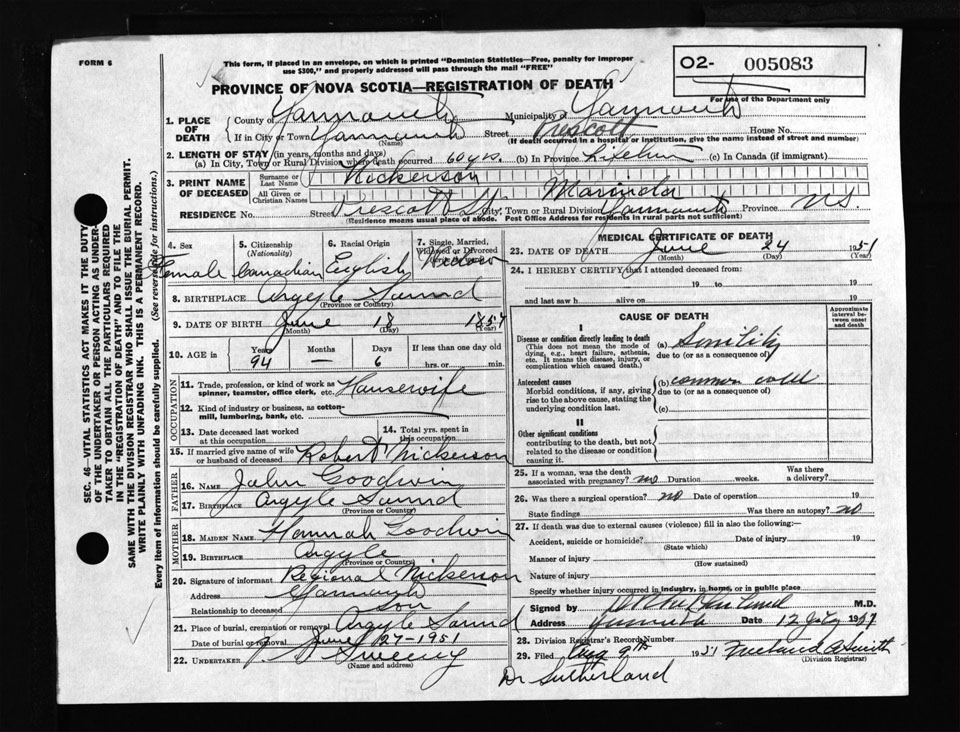 FORM 6
This form, if placed in an envelope, on which is printed "Dominion Statistics—Free, penalty for improper
use $300," and properly addressed will pass through the mail "FREE"
O2- 005083
For use of the Department only
PROVINCE OF NOVA SCOTIA—REGISTRATION OF DEATH
1. PLACE OF DEATH
County of Yarmouth Municipality of Yarmouth
If in City or Town Yarmouth Street Prescott House No.
(Name) (If death occurred in a hospital or institution, give the name instead of street and number)
2. LENGTH OF STAY (in years, months and days)
(a) In City, Town or Rural Division where death occurred 60 yrs. (b) In Province Lifetime (c) In Canada (if immigrant)
3. PRINT NAME OF DECEASED
Surname or Last Name Nickerson
All Given or Christian Names Marinda
RESIDENCE No. Street Prescott St City, Town or Rural Division Yarmouth Province N.S.
(Residence means usual place of abode. Post Office Address for residents in rural parts not sufficient)
SEC. 46—VITAL STATISTICS ACT MAKES IT THE DUTY
OF THE UNDERTAKER OR PERSON ACTING AS UNDER-
TAKER TO OBTAIN ALL THE PARTICULARS REQUIRED
IN THE "REGISTRATION OF DEATH" AND TO FILE THE
SAME WITH THE DIVISION REGISTRAR WHO SHALL ISSUE THE BURIAL PERMIT.
WRITE PLAINLY WITH UNFADING INK. THIS IS A PERMANENT RECORD.
Every item of information should be carefully supplied. (See reverse side for instructions.)
4. Sex 5. Citizenship (Nationality) 6. Racial Origin 7. Single, Married, Widowed or Divorced (Write the word)
Female Canadian English Widow
8. BIRTHPLACE Argyle Sound
(Province or Country)
9. DATE OF BIRTH June 18 1857
(Month) (Day) (Year)
10. AGE in Years Months Days If less than one day old
94 — 6 hrs. or min.
OCCUPATION
11. Trade, profession, or kind of work as spinner, teamster, office clerk, etc. Housewife
12. Kind of industry or business, as cotton-mill, lumbering, bank, etc.
13. Date deceased last worked at this occupation
14. Total yrs. spent in this occupation
15. If married give name of wife or husband of deceased Robert Nickerson
FATHER
16. NAME John Goodwin
17. BIRTHPLACE Argyle Sound
(Province or Country)
MOTHER
18. MAIDEN NAME Hannah Goodwin
19. BIRTHPLACE Argyle
(Province or Country)
20. Signature of informant Reginal Nickerson
Address Yarmouth
Relationship to deceased son
21. Place of burial, cremation or removal Argyle Sound
Date of burial or removal June 27-1951
22. UNDERTAKER Sweeny
(Name and address)
MEDICAL CERTIFICATE OF DEATH
23. DATE OF DEATH June 24 1951
(Month) (Day) (Year)
24. I HEREBY CERTIFY that I attended deceased from:
19 to 19
and last saw h alive on 19
CAUSE OF DEATH
Approximate interval between onset and death
I
Disease or condition directly leading to death
(This does not mean the mode of dying, e.g., heart failure, asthenia, etc. It means the disease, injury, or complication which caused death.)
(a) Senility
due to (or as a consequence of)
Antecedent causes
Morbid conditions, if any, giving rise to the above cause, stating the underlying condition last.
(b) common cold
due to (or as a consequence of)
(c)
II
Other significant conditions
contributing to the death, but not related to the disease or condition causing it
25. If a woman, was the death associated with pregnancy? no Duration weeks. Was there a delivery?
26. Was there a surgical operation? no Date of operation 19
State findings Was there an autopsy? no
27. If death was due to external causes (violence) fill in also the following:—
Accident, suicide or homicide? Date of injury 19
(State which)
Manner of injury
(How sustained)
Nature of injury
Specify whether injury occurred in industry, in home, or in public place
Signed by M.D.
Address Yarmouth Date 12 July 19
28. Division Registrar's Record Number
29. Filed Aug 9th 1951 Smith
(Division Registrar)
Dr Sutherland